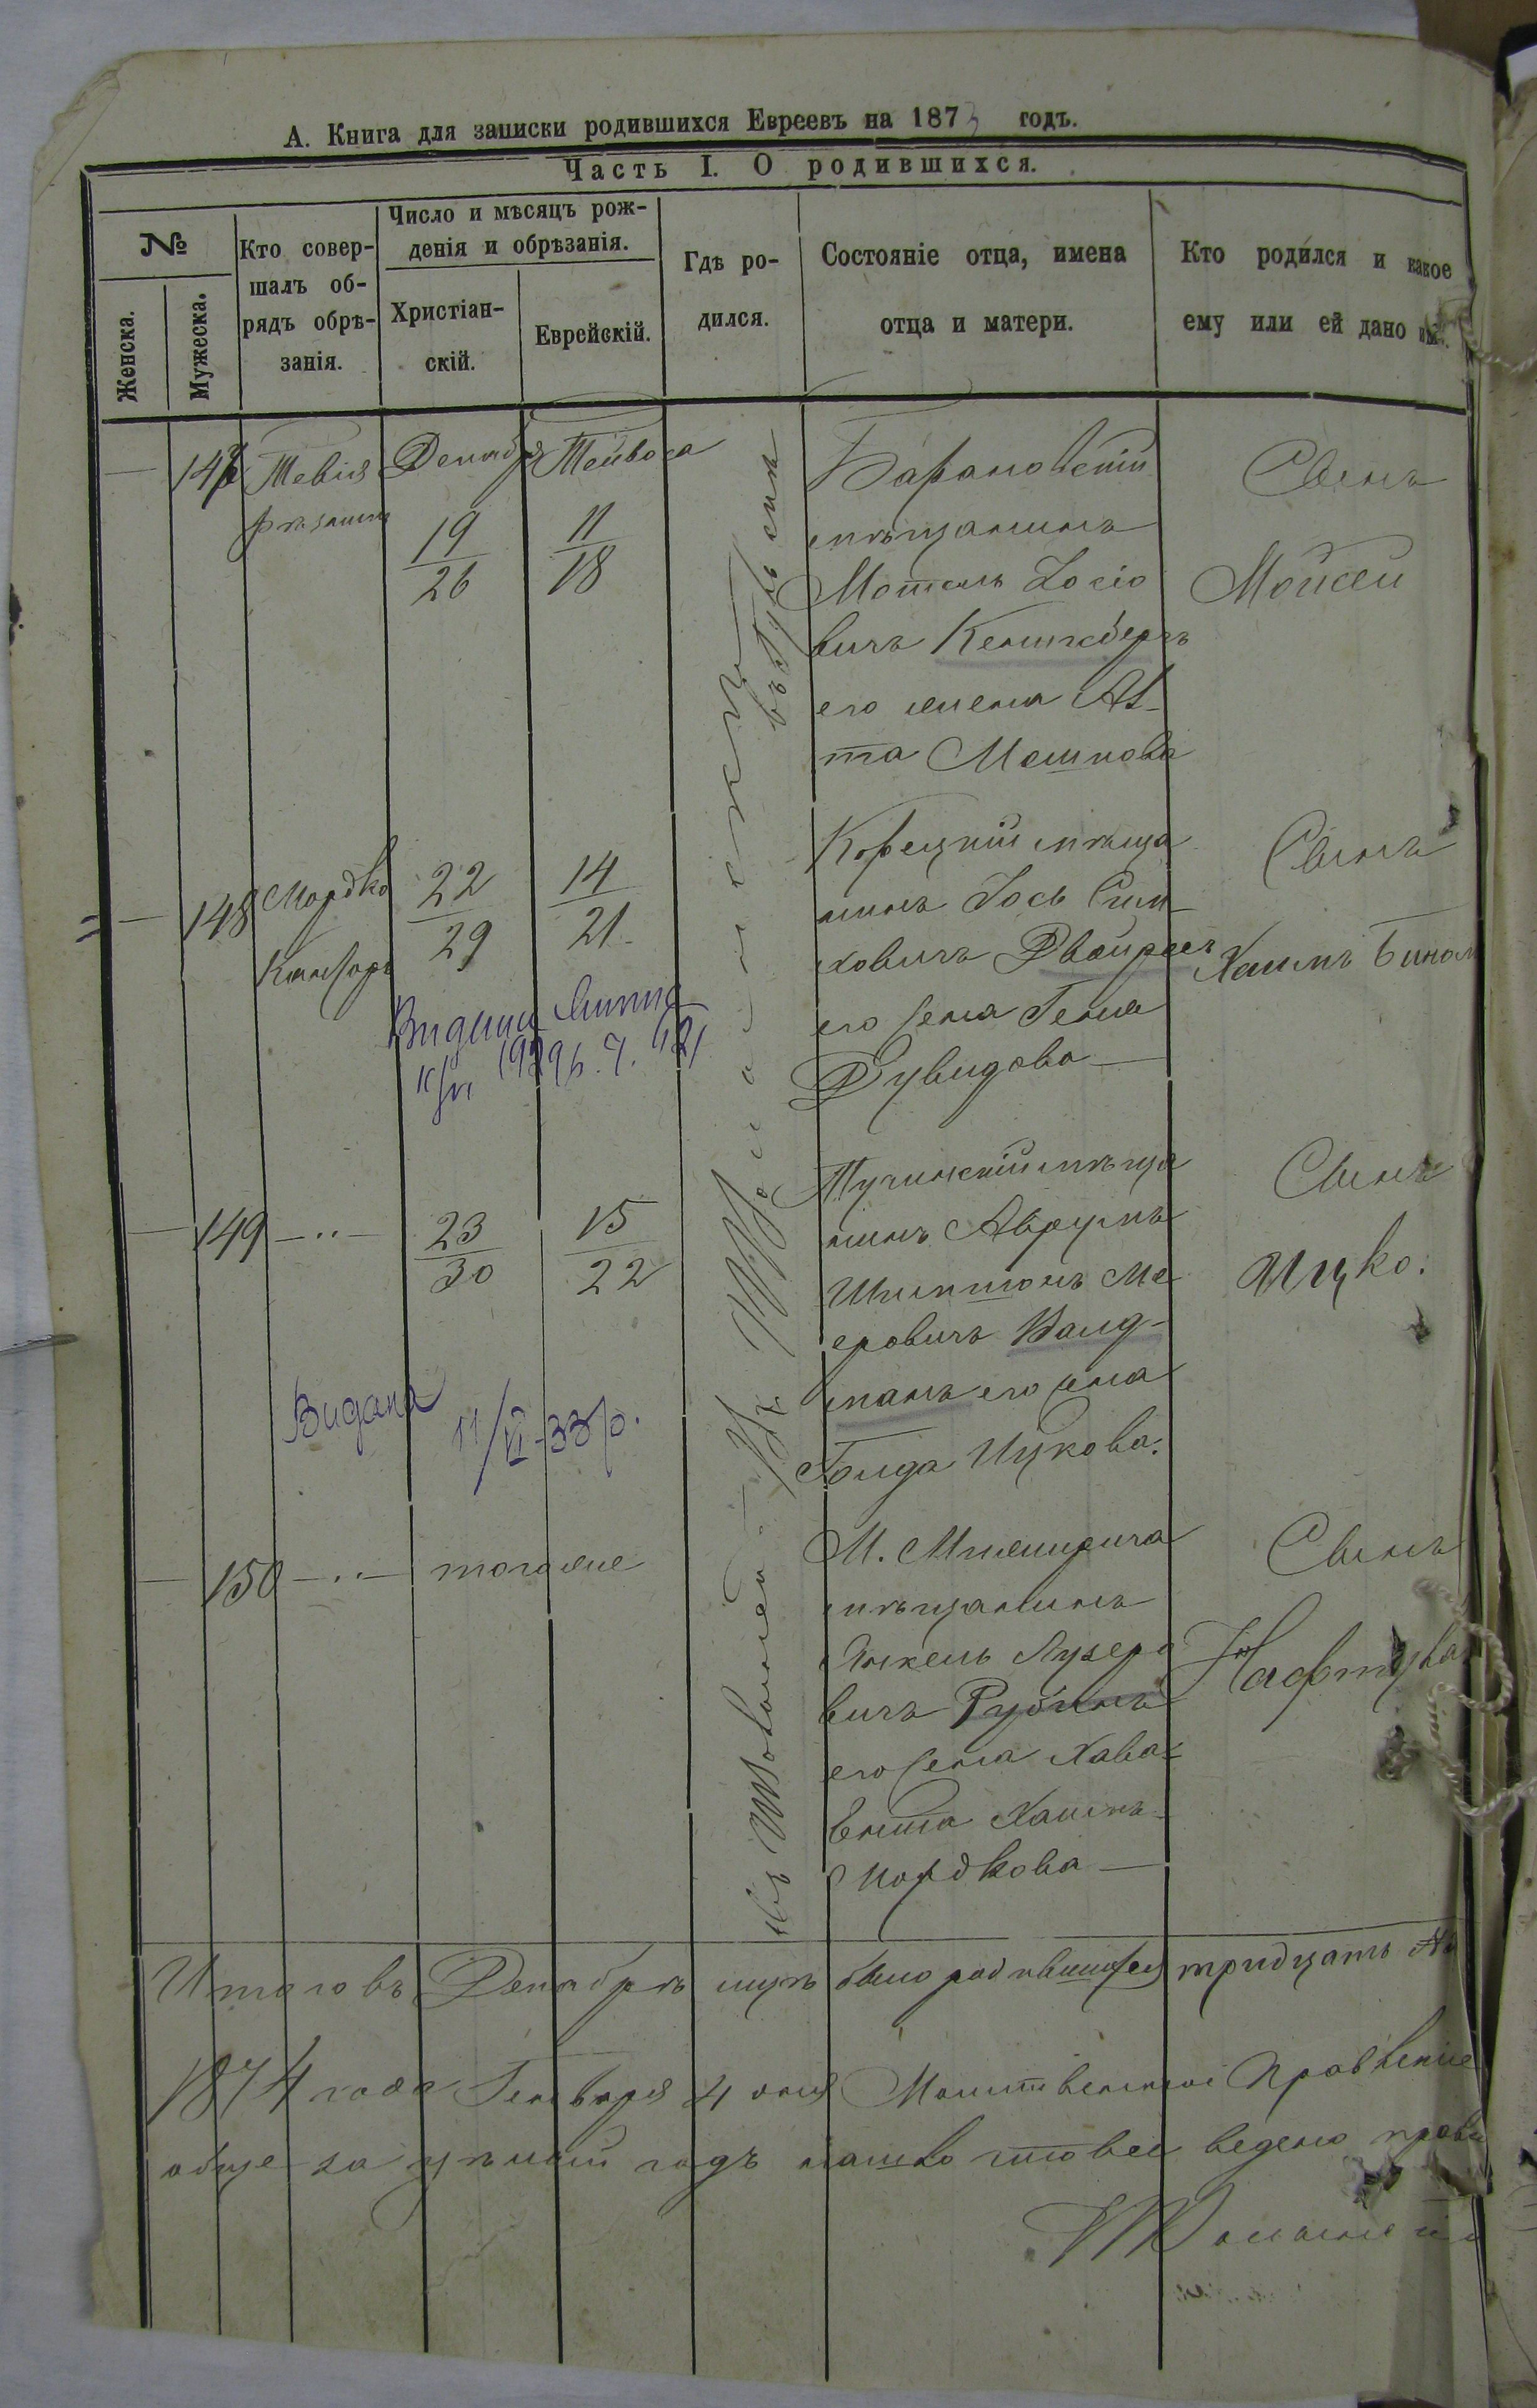 А. Книга для записки родившихся Евреевъ на 1873 годъ.
Часть I. О родившихся.
№
Женска.
Мужеска.
Кто совер-
шалъ об-
рядъ обрѣ-
занія.
Число и мѣсяцъ рож-
денія и обрѣзанія.
Христіан-
скій.
Еврейскій.
Гдѣ ро-
дился.
Состояніе отца, имена
отца и матери.
Кто родился и какое
ему или ей дано им.
147 Тевія
Рѣзникъ
Декабря
19
26
Тейвоса
11
18
Барановскій
мѣщанинъ
Мотель Іосіо
вичъ Кенигсбергъ
его жена
та Мошкова
Сынъ
Мойсей
148
Мордко
Канторъ
22
29
14
21
Корецкій мѣща
нинъ Іось Сим
ховичъ Двойрес
его жена Геня
Дувидова
Сынъ
Хаимъ Бином
1929 р.
149 — ·· —
23
30
15
22
Тучинскій мѣща
нинъ Аврумъ
Ме
еровичъ Валд-
манъ его жена
Голда Ицкова.
Сынъ
Ицко.
Видана 11/VI-33 р.
150 — ·· —
тогоже
М. Межирича
мѣщанинъ
Янкель Лузеро
вичъ Рубинъ
его жена Хава
Ента Хаимъ
Мордкова
Сынъ
Нафтула
Итого въ Декабрѣ муж было родившихся тридцать
1874 года Генваря 4 дня Молитвенное Правленіе
обще за цѣлый годъ нашло что все ведено прави